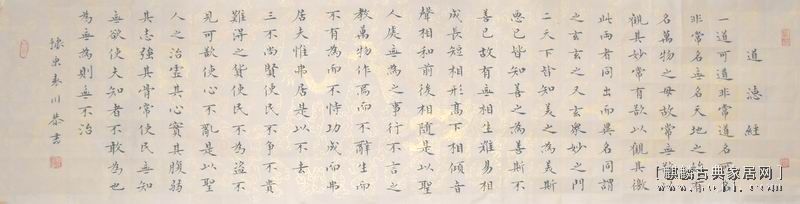 道德经
一道可道非常道名可名
非常名無名天地之始有
名萬物之母故常無欲以
觀其妙常有欲以觀其徼
此兩者同出而異名同謂
之玄玄之又玄衆妙之門
二天下皆知美之為美斯
惡已皆知善之為善斯不
善已故有無相生難易相
成長短相形高下相傾音
聲相和前後相隨是以聖
人處無為之事行不言之
教萬物作焉而不辭生而
不有為而不恃功成而弗
居夫惟弗居是以不去
三不尚賢使民不爭不貴
難得之貨使民不為盜不
見可欲使心不亂是以聖
人之治虛其心實其腹弱
其志強其骨常使民無知
無欲使夫知者不敢為也
為無為則無不治
秦川恭書
「麒麟古典家居网」